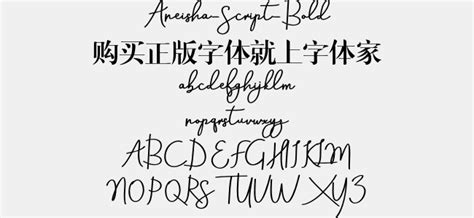 Aneisha-Script-Bold
购买正版字体就上字体家
abcdefghijklm
nopqrstuvwxyz
ABCDEFGHIJKLM
NOPQRSTUVWXYZ